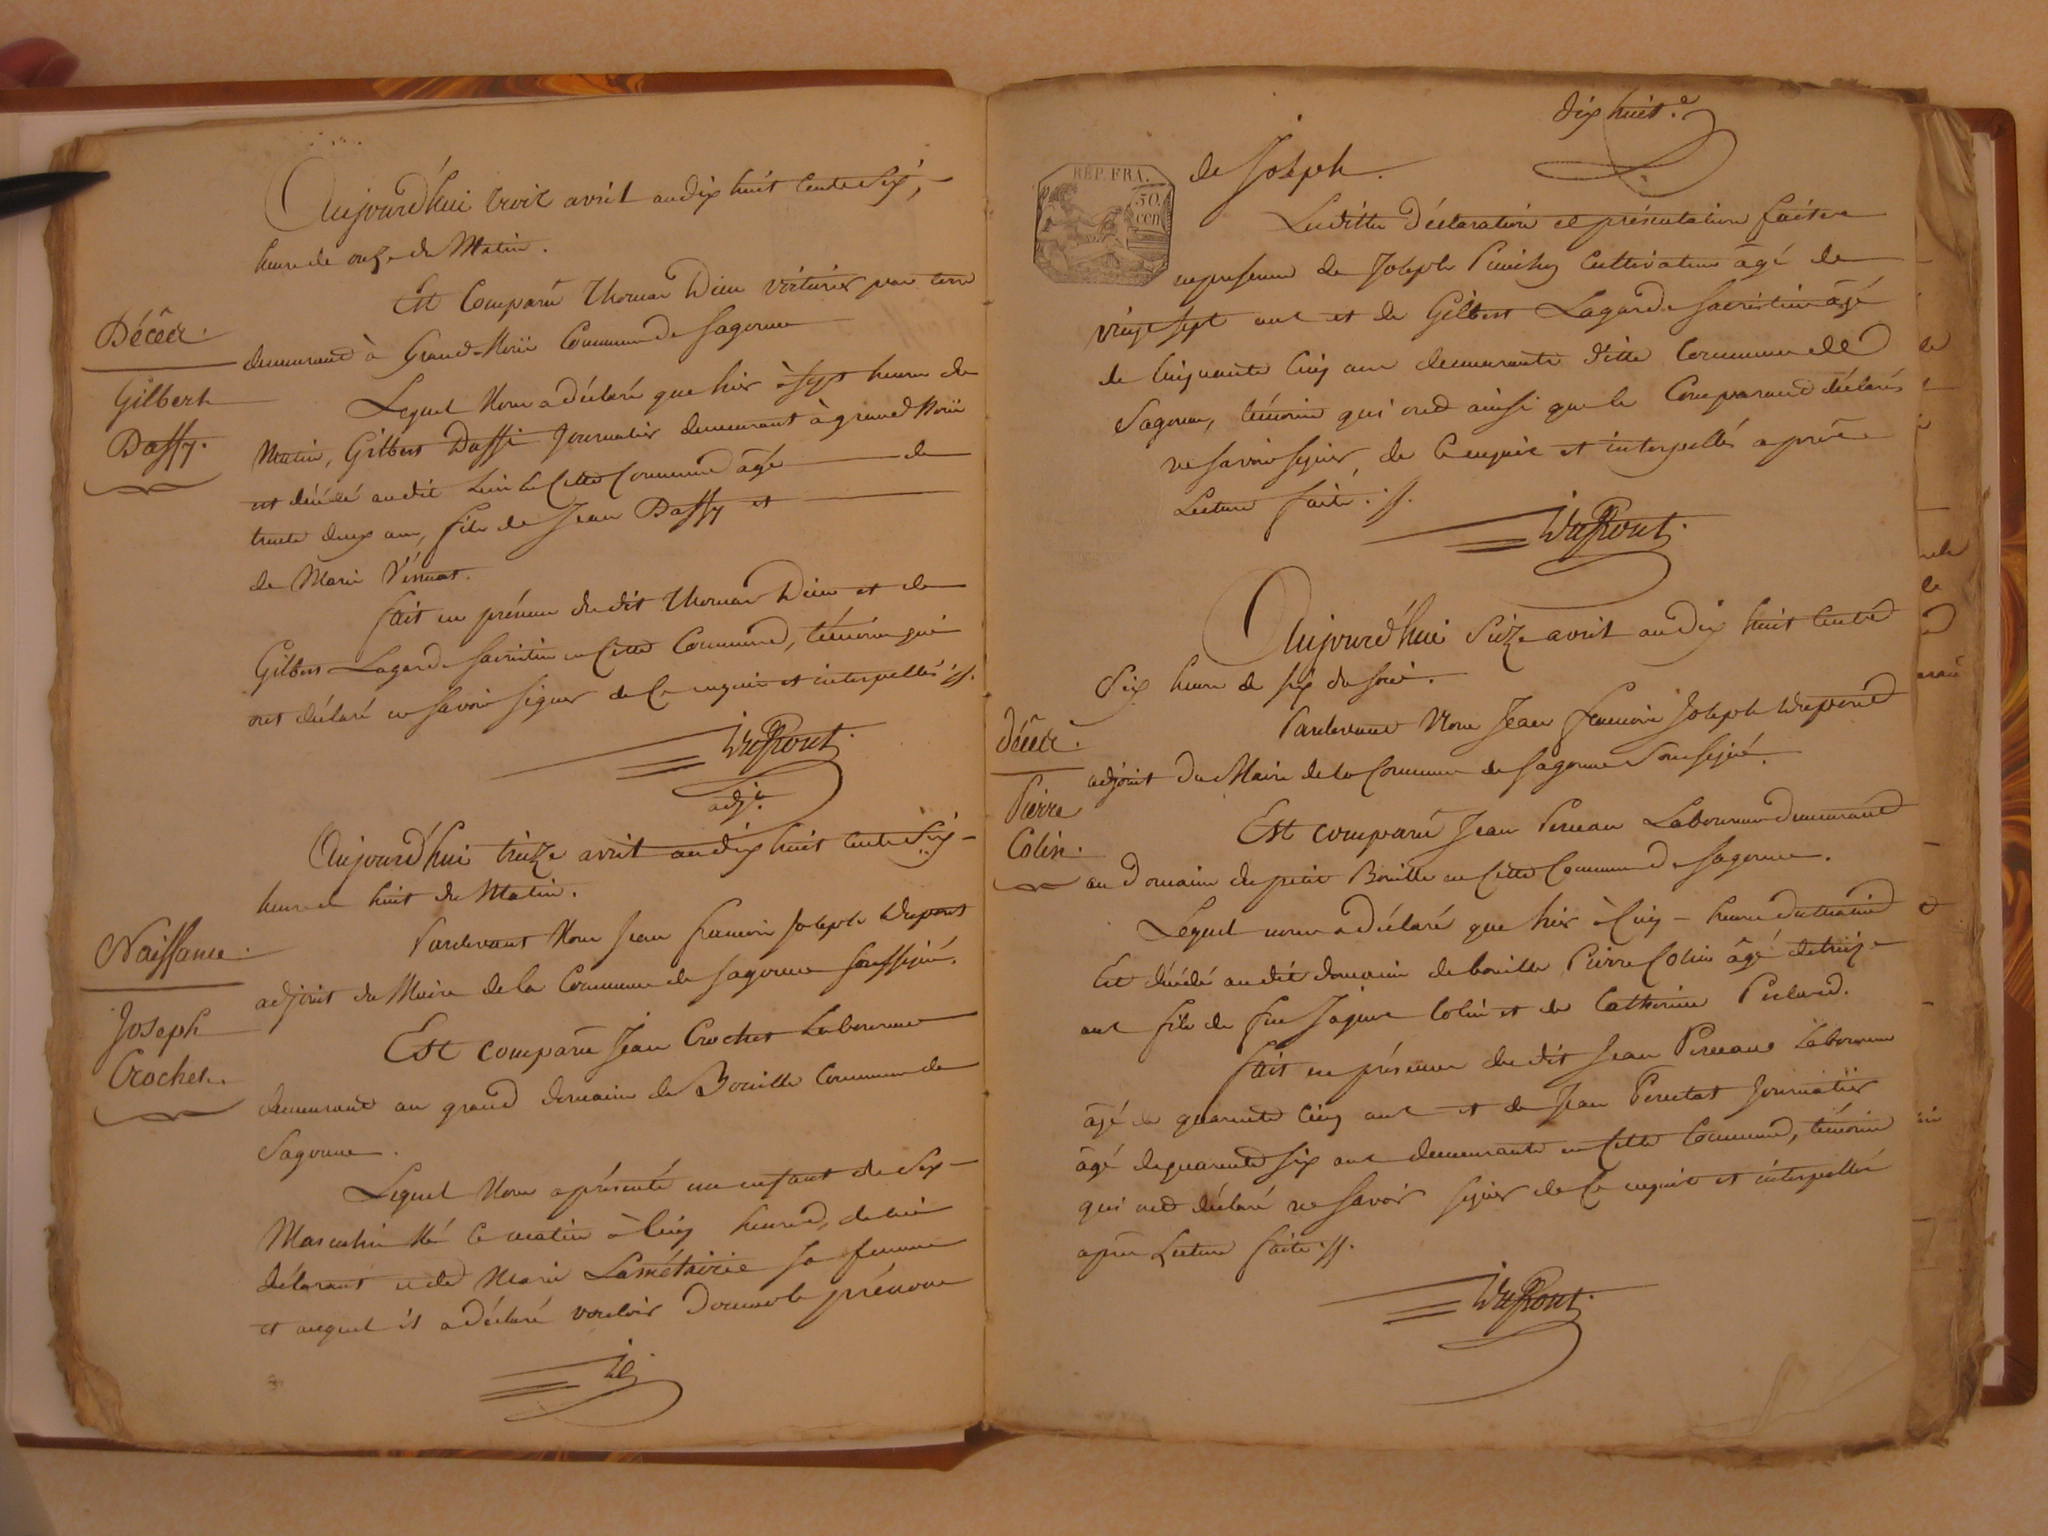 Aujourd'hui trois avril an dix huit cent six,
heure de onze du Matin.
Est Comparu Thomas Dieu voiturier par terre
Décéds.
demeurant à Grand-Morii Commune de Sagonne
Gilbert
Daffy.
Lequel Nous a déclaré que hier à sept heures du
Matin, Gilbert Daffi Journalier demeurant à grand Morii
est décédé audit Lieu de Cette Commune âgé de
trente deux ans, fils de Jean Daffy et
de Marie
fait en présence du dit Thomas Dieu et de
Gilbert Lagarde sacristin en Cette Commune, témoins qui
ont déclaré ne savoir signer de Ce enquis et interpellés ./.
Dupont
adjt.
Aujourd'hui treize avril an dix huit cent Six
heure de huit du Matin.
Naissance.
Pardevant Nous Jean francois Joseph Dupont
adjoint du Maire de la Commune de Sagonne soussigné.
Joseph
Crochet.
Est comparu Jean Crochet Laboureur
demeurant au grand domaine de Bouille Commune de
Sagonne.
Lequel Nous a présenté un enfant du Sexe
Masculin Né ce matin à cinq heures, de lui
déclarant et de Marie Lamétairie sa femme
et auquel il a déclaré vouloir donner le prénom
dix huit.
REP. FRA.
50.
cen
de Joseph.
Lesdittes déclaration et présentation faites en
présence de Joseph cultivateur âgé de
vingt sept ans et de Gilbert Lagarde sacristin âgé
de cinquante cinq ans demeurants ditte Commune de
Sagonne, témoins qui ont ainsi que le Comparant déclarés
ne savoir signer, de Ce enquis et interpellés après
Lecture faite ./.
Dupont.
Aujourd'hui Seize avril an dix huit cent
Six heure de six du soir.
Pardevant Nous Jean francois Joseph Dupont
Décéds.
adjoint du Maire de la Commune de Sagonne Soussigné.
Pierre
Colin.
Est comparu Jean Laboureur demeurant
au Domaine du petit Bouille en Cette Commune de Sagonne.
Lequel nous a déclaré que hier à Cinq heures du matin
Est décédé audit domaine de bouille Pierre Colin âgé de treize
ans fils de feu Jaques Colin et de Catherine
fait en présence du dit Jean Laboureur
âgé de quarente Cinq ans et de Jean Journalier
âgé de quarente six ans demeurants en Cette Commune, témoins
qui ont déclaré ne savoir signer de Ce enquis et interpellés
après Lecture faite ./.
Dupont.